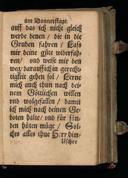 am Donnerstage.
auff das ich nicht gleich
werde denen / die in die
Gruben fahren / Laß
mir deine güte widerfah-
ren / und weise mir den
weg / darauff ich in gerech-
tigkeit gehen sol / Lerne
mich auch thun nach dei-
nem Göttlichen willen
und wolgefallen / damit
ich mich nach deinen Ge-
boten halte / und für sün-
den hüten müge / Sol-
ches alles thue HErr him-
lischer